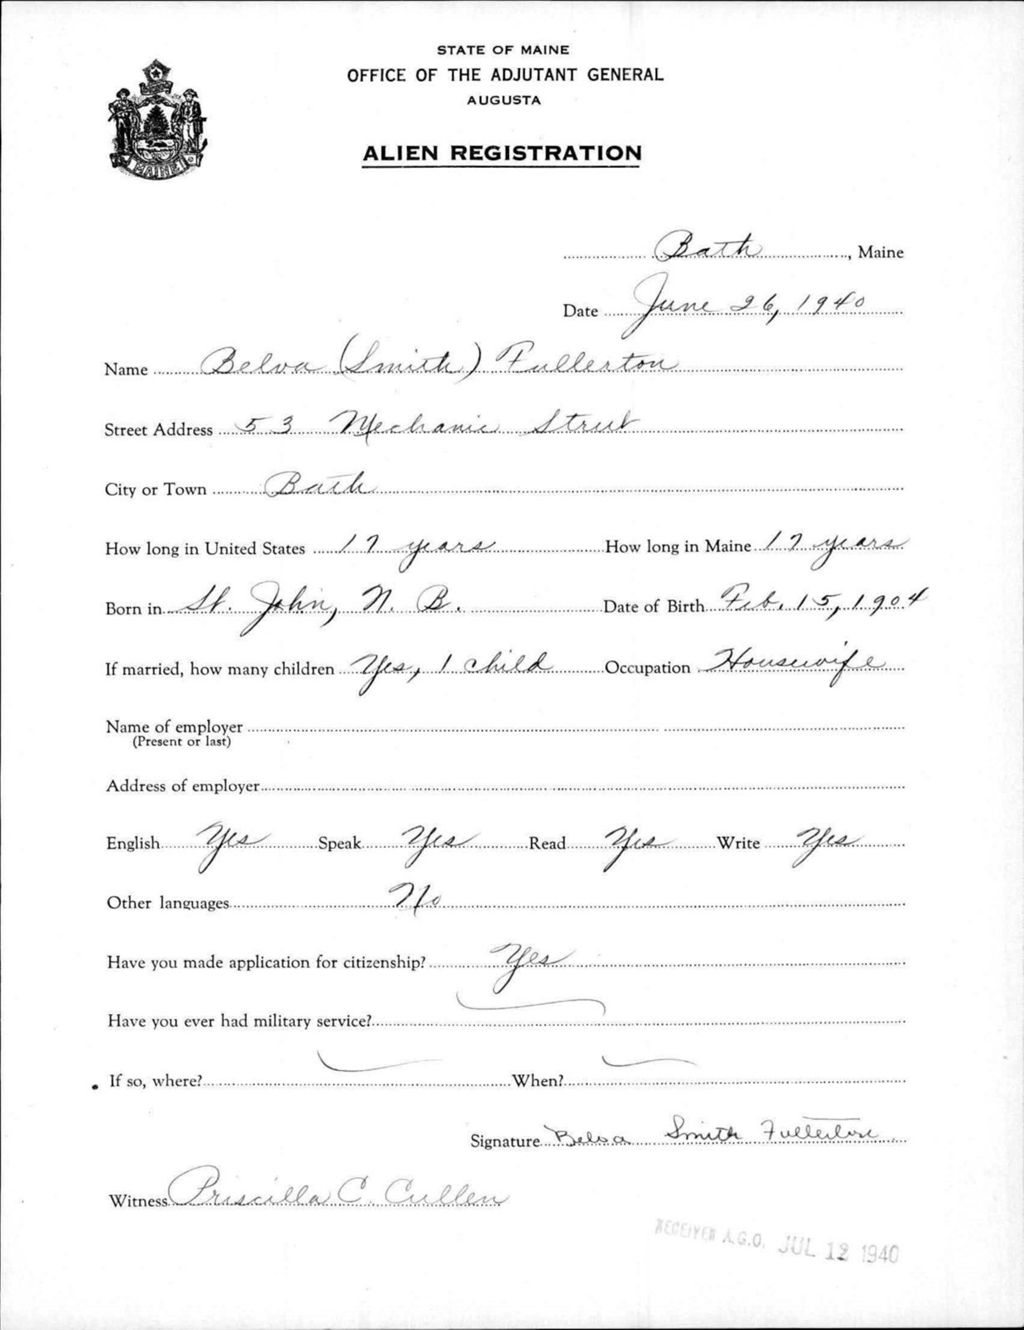 STATE OF MAINE
OFFICE OF THE ADJUTANT GENERAL
AUGUSTA
ALIEN REGISTRATION
MAINE
Bath, Maine
Date June 26, 1940
Name Belva (Smith) Fullerton
Street Address 53 Mechanic Street
City or Town Bath
How long in United States 17 years How long in Maine 17 years
Born in St. John, N. B. Date of Birth Feb. 15, 1904
If married, how many children Yes, 1 child Occupation Housewife
Name of employer
(Present or last)
Address of employer
English Yes Speak Yes Read Yes Write Yes
Other languages No
Have you made application for citizenship? Yes
Have you ever had military service?
If so, where? When?
Signature Belva Smith Fullerton
Witness Priscilla C. Cullen
RECEIVED A.G.O. JUL 12 1940